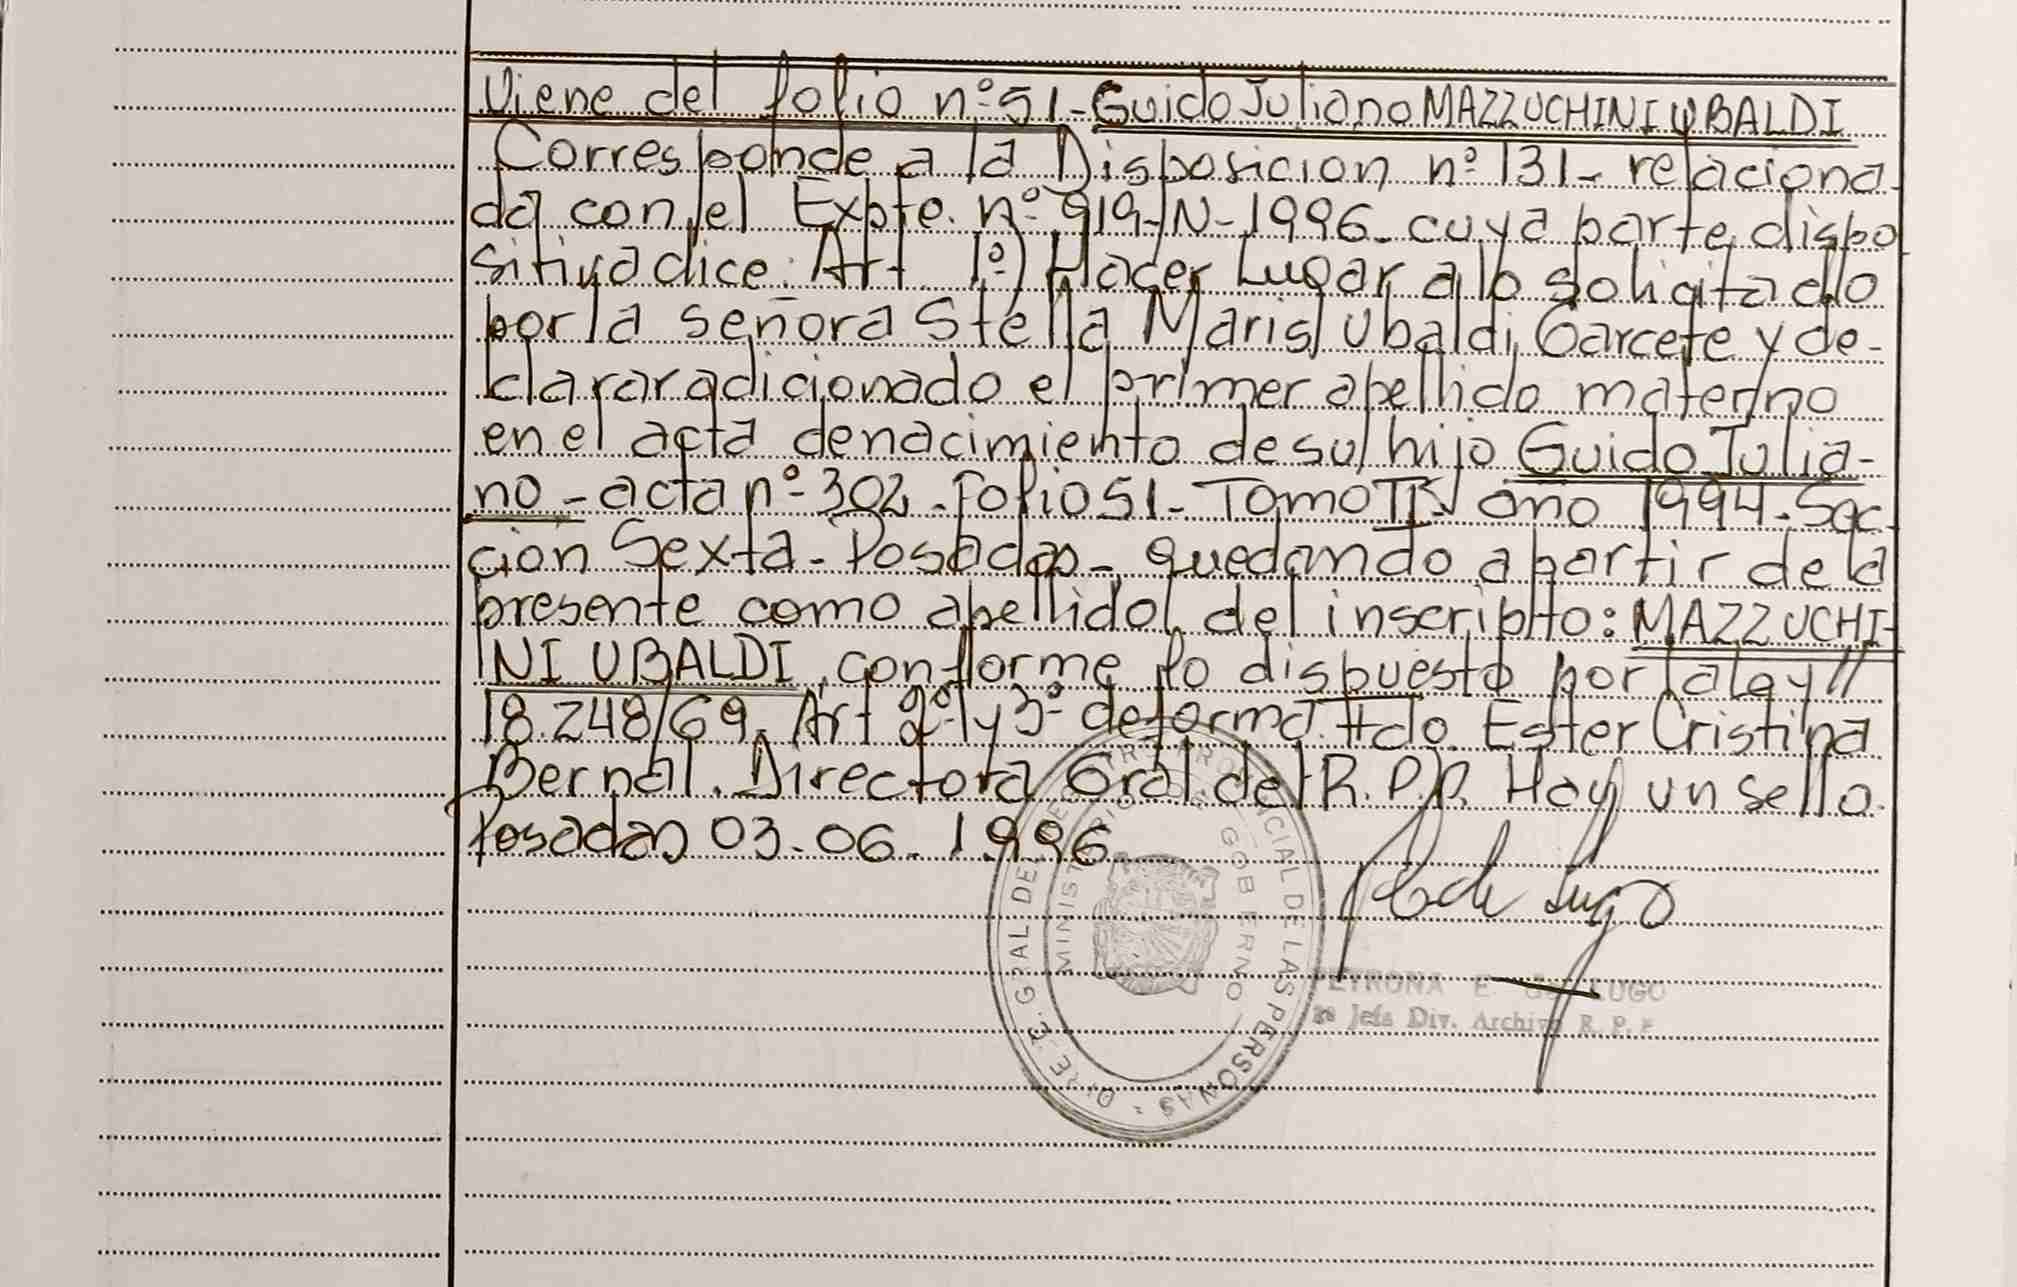 Viene del folio nº 51 - Guido Juliano MAZZUCHINI UBALDI
Corresponde a la Disposicion nº 131 - relaciona-
da con el Expte. nº 919-N-1996. cuya parte dispo
sitiva dice: Art 1º) Hacer Lugar a lo solicitado
por la señora Stella Maris Ubaldi Garcete y de-
clarar adicionado el primer apellido materno
en el acta de nacimiento de su hijo Guido Julia-
no - acta nº 302 - Folio 51 - Tomo IV año 1994 - Sec-
cion Sexta - Posadas - quedando a partir de la
presente como apellido del inscripto: MAZZUCHI-
NI UBALDI, conforme lo dispuesto por la ley //
18.248/69. Art 2º y 3º de forma. Fdo. Ester Cristina
Bernal. Directora Gral del R.P.P. Hay un sello.
Posadas 03.06.1996
MINISTERIO DE GOBIERNO
PROVINCIAL DE LAS PERSONAS
de Lugo
PETRONA E LUGO
Jefa Div. Archivo R. P. P